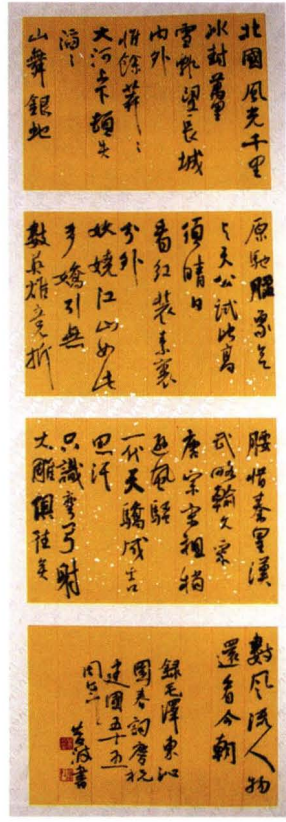 北國風光千里
冰封萬里
雪飄望長城
內外
惟餘莽々
大河上下頓失
滔々
山舞銀蛇
原馳臘象欲
與天公試比高
須晴日
看紅裝素裹
分外
妖嬈江山如此
多嬌引無
數英雄竞折
腰惜秦皇漢
武略輸文采
唐宗宋祖稍
遜風騷
一代天驕成吉
思汗
只識彎弓射
大雕俱往矣
數風流人物
還看今朝
錄毛澤東沁
園春詞慶祝
建國五十五
周年
波書